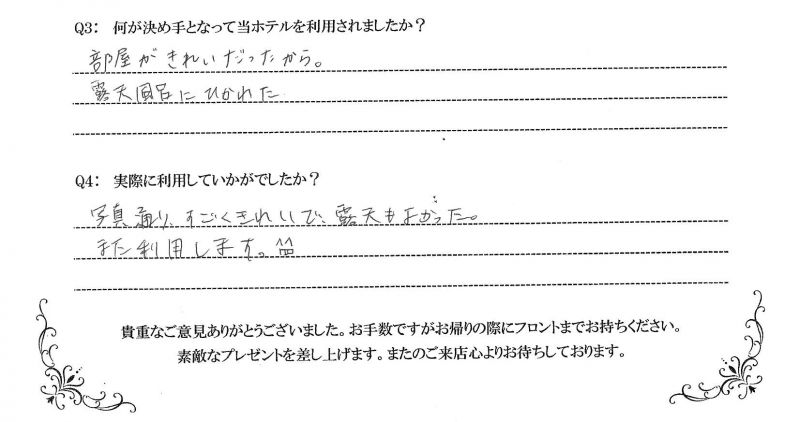 Q3: 何が決め手となって当ホテルを利用されましたか？
部屋がきれいだったから。
露天風呂にひかれた
Q4: 実際に利用していかがでしたか？
写真通り、すごくきれいで、露天もよかった。
また利用します。^^
貴重なご意見ありがとうございました。お手数ですがお帰りの際にフロントまでお持ちください。
素敵なプレゼントを差し上げます。またのご来店心よりお待ちしております。